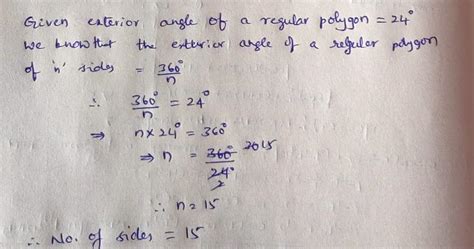 Given exterior angle of a regular polygon = 24°
We know that the exterior angle of a regular polygon
of 'n' sides = 360°/n
∴ 360°/n = 24°
⇒ n × 24° = 360°
⇒ n = 360°/24° 30 15
2
∴ n = 15
∴ No. of sides = 15